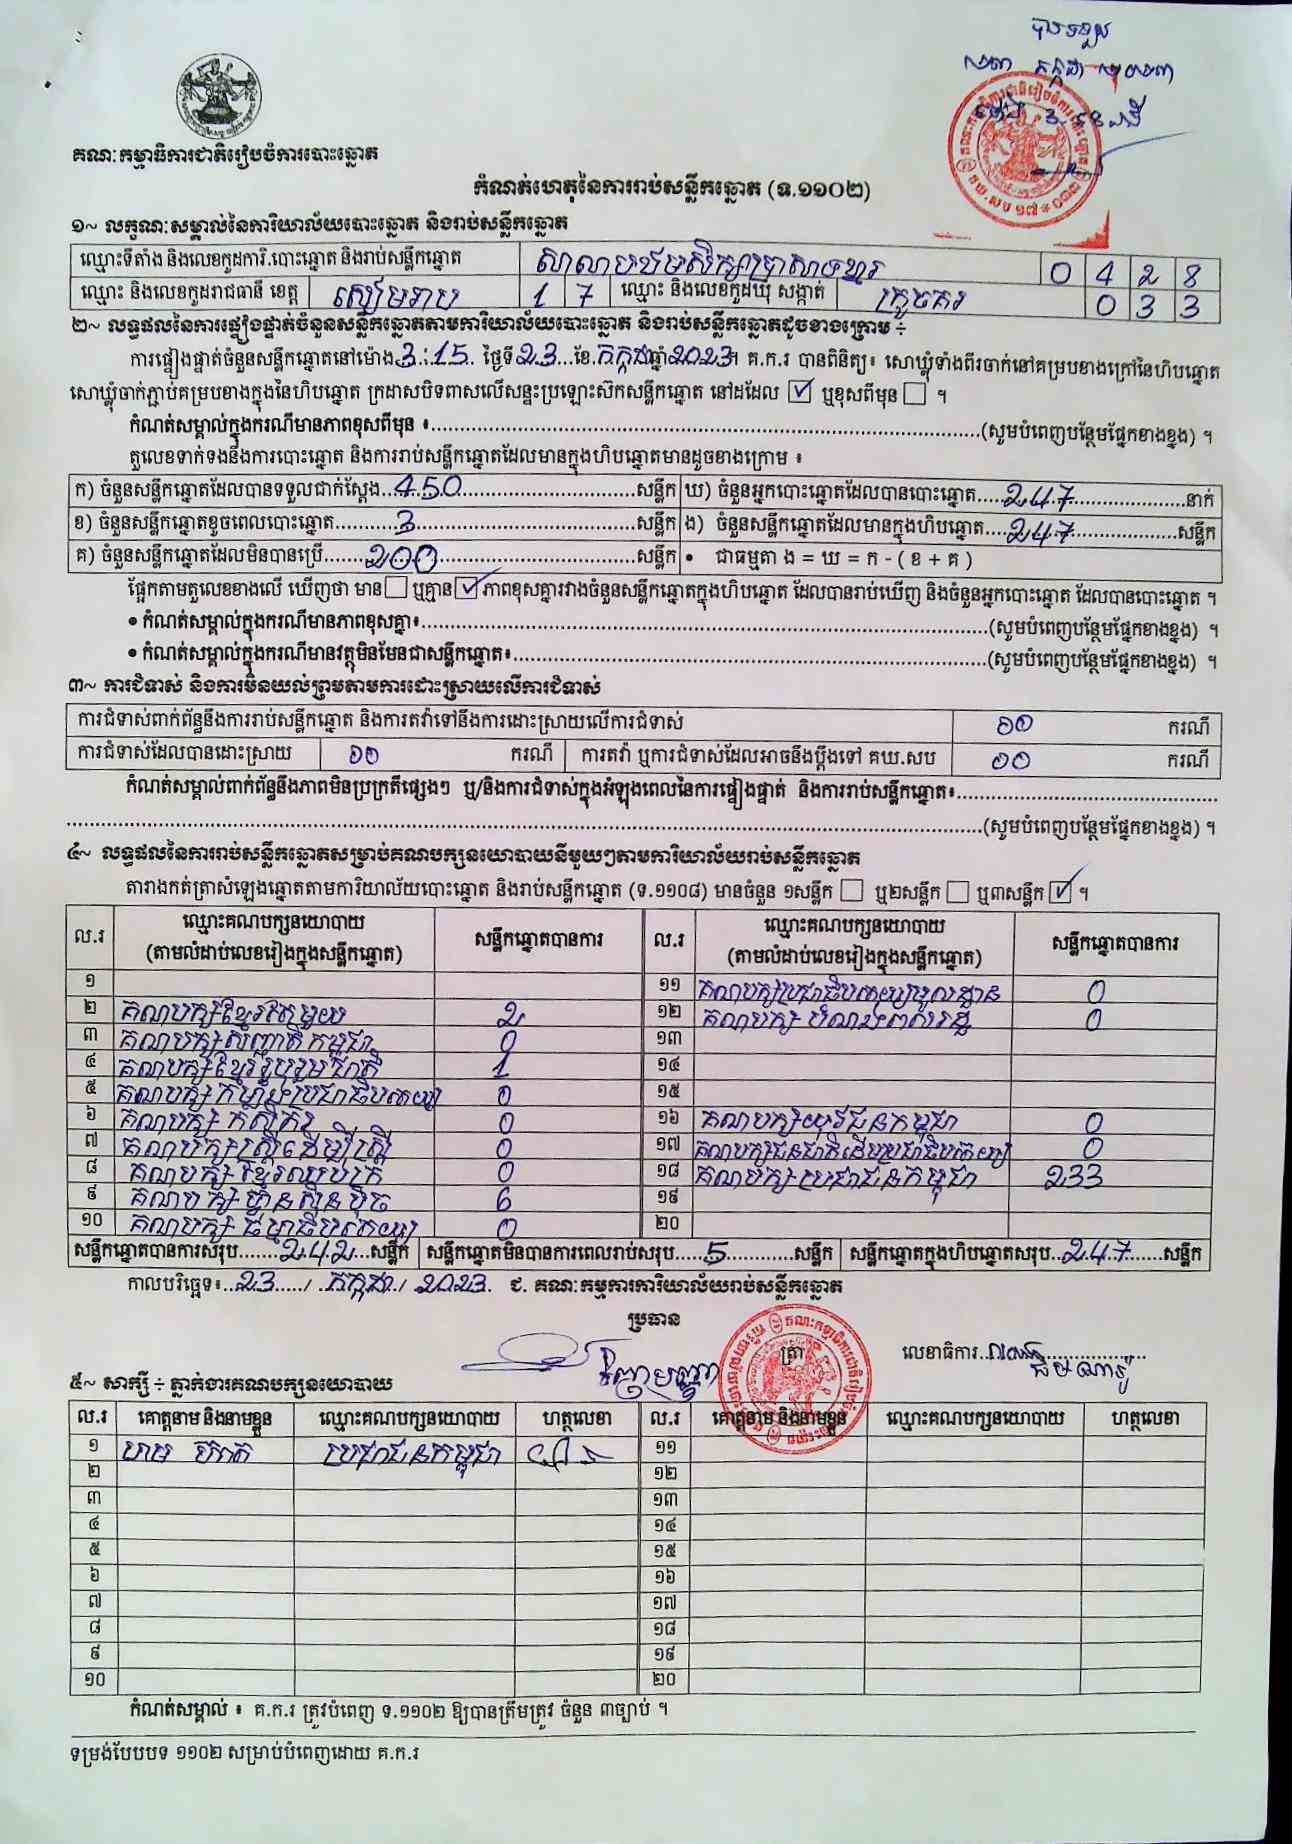 បានទទួល
គណៈកម្មាធិការជាតិរៀបចំការបោះឆ្នោត
កំណត់ហេតុនៃការរាប់សន្លឹកឆ្នោត (ទ.១១០២)
១~ លក្ខណៈសម្គាល់នៃការិយាល័យបោះឆ្នោត និងរាប់សន្លឹកឆ្នោត
ឈ្មោះទីតាំង និងលេខកូដការិ.បោះឆ្នោត និងរាប់សន្លឹកឆ្នោត សាលាបឋមសិក្សាប្រាសាទខ្នារ 0 4 2 8
ឈ្មោះ និងលេខកូដរាជធានី ខេត្ត សៀមរាប 1 7 ឈ្មោះ និងលេខកូដឃុំ សង្កាត់ ក្រូចគរ 0 3 3
២~ លទ្ធផលនៃការផ្ទៀងផ្ទាត់ចំនួនសន្លឹកឆ្នោតតាមការិយាល័យបោះឆ្នោត និងរាប់សន្លឹកឆ្នោតដូចខាងក្រោម ÷
ការផ្ទៀងផ្ទាត់ចំនួនសន្លឹកឆ្នោតនៅម៉ោង 3:15 ថ្ងៃទី 23 ខែ កក្កដា ឆ្នាំ 2023។ គ.ក.រ បានពិនិត្យ៖ សោឃ្លុំទាំងពីរចាក់នៅគម្របខាងក្រៅនៃហិបឆ្នោត
សោឃ្លុំចាក់ភ្ជាប់គម្របខាងក្នុងនៃហិបឆ្នោត ក្រដាសបិទពាសលើសន្ទះប្រឡោះស៊កសន្លឹកឆ្នោត នៅដដែល ☑ ឬខុសពីមុន ☐ ។
កំណត់សម្គាល់ក្នុងករណីមានភាពខុសពីមុន ៖ (សូមបំពេញបន្ថែមផ្នែកខាងខ្នង) ។
តួលេខទាក់ទងនឹងការបោះឆ្នោត និងការរាប់សន្លឹកឆ្នោតដែលមានក្នុងហិបឆ្នោតមានដូចខាងក្រោម ៖
ក) ចំនួនសន្លឹកឆ្នោតដែលបានទទួលជាក់ស្តែង 450 សន្លឹក ឃ) ចំនួនអ្នកបោះឆ្នោតដែលបានបោះឆ្នោត 247 នាក់
ខ) ចំនួនសន្លឹកឆ្នោតខូចពេលបោះឆ្នោត 3 សន្លឹក ង) ចំនួនសន្លឹកឆ្នោតដែលមានក្នុងហិបឆ្នោត 247 សន្លឹក
គ) ចំនួនសន្លឹកឆ្នោតដែលមិនបានប្រើ 200 សន្លឹក • ជាធម្មតា ង = ឃ = ក - ( ខ + គ )
ផ្អែកតាមតួលេខខាងលើ ឃើញថា មាន ☐ ឬគ្មាន ☑ ភាពខុសគ្នារវាងចំនួនសន្លឹកឆ្នោតក្នុងហិបឆ្នោត ដែលបានរាប់ឃើញ និងចំនួនអ្នកបោះឆ្នោត ដែលបានបោះឆ្នោត ។
• កំណត់សម្គាល់ក្នុងករណីមានភាពខុសគ្នា៖ (សូមបំពេញបន្ថែមផ្នែកខាងខ្នង) ។
• កំណត់សម្គាល់ក្នុងករណីមានវត្ថុមិនមែនជាសន្លឹកឆ្នោត៖ (សូមបំពេញបន្ថែមផ្នែកខាងខ្នង) ។
៣~ ការជំទាស់ និងការមិនយល់ព្រមតាមការដោះស្រាយលើការជំទាស់
ការជំទាស់ពាក់ព័ន្ធនឹងការរាប់សន្លឹកឆ្នោត និងការតវ៉ាទៅនឹងការដោះស្រាយលើការជំទាស់ ០០ ករណី
ការជំទាស់ដែលបានដោះស្រាយ ០០ ករណី ការតវ៉ា ឬការជំទាស់ដែលអាចនឹងប្តឹងទៅ គឃ.សប ០០ ករណី
កំណត់សម្គាល់ពាក់ព័ន្ធនឹងភាពមិនប្រក្រតីផ្សេងៗ ឬ/និងការជំទាស់ក្នុងអំឡុងពេលនៃការផ្ទៀងផ្ទាត់ និងការរាប់សន្លឹកឆ្នោត៖
(សូមបំពេញបន្ថែមផ្នែកខាងខ្នង) ។
៤~ លទ្ធផលនៃការរាប់សន្លឹកឆ្នោតសម្រាប់គណបក្សនយោបាយនីមួយៗតាមការិយាល័យរាប់សន្លឹកឆ្នោត
តារាងកត់ត្រាសំឡេងឆ្នោតតាមការិយាល័យបោះឆ្នោត និងរាប់សន្លឹកឆ្នោត (ទ.១១០៨) មានចំនួន ១សន្លឹក ☐ ឬ២សន្លឹក ☐ ឬ៣សន្លឹក ☑ ។
ល.រ ឈ្មោះគណបក្សនយោបាយ (តាមលំដាប់លេខរៀងក្នុងសន្លឹកឆ្នោត) សន្លឹកឆ្នោតបានការ ល.រ ឈ្មោះគណបក្សនយោបាយ (តាមលំដាប់លេខរៀងក្នុងសន្លឹកឆ្នោត) សន្លឹកឆ្នោតបានការ
១ ១១ គណបក្សប្រជាធិបតេយ្យមូលដ្ឋាន 0
២ គណបក្សខ្មែរតែមួយ 2 ១២ គណបក្ស បំណងពលរដ្ឋ 0
៣ គណបក្សសញ្ជាតិកម្ពុជា 0 ១៣
៤ គណបក្សខ្មែររួបរួមជាតិ 1 ១៤
៥ គណបក្ស កម្លាំងប្រជាធិបតេយ្យ 0 ១៥
៦ គណបក្ស កសិករ 0 ១៦ គណបក្សយុវជនកម្ពុជា 0
៧ គណបក្សស្ត្រីដើម្បីស្ត្រី 0 ១៧ គណបក្សជនជាតិដើមប្រជាធិបតេយ្យ 0
៨ គណបក្ស ខ្មែរឈប់ក្រ 0 ១៨ គណបក្សប្រជាជនកម្ពុជា 233
៩ គណបក្ស ហ្វ៊ុនស៊ិនប៉ិច 6 ១៩
១០ គណបក្ស ធម្មាធិបតេយ្យ 0 ២០
សន្លឹកឆ្នោតបានការសរុប 242 សន្លឹក សន្លឹកឆ្នោតមិនបានការពេលរាប់សរុប 5 សន្លឹក សន្លឹកឆ្នោតក្នុងហិបឆ្នោតសរុប 247 សន្លឹក
កាលបរិច្ឆេទ៖ 23 / កក្កដា / 2023 ជ. គណៈកម្មការការិយាល័យរាប់សន្លឹកឆ្នោត
ប្រធាន
ត្រា លេខាធិការ
៥~ សាក្សី ÷ ភ្នាក់ងារគណបក្សនយោបាយ
ល.រ គោត្តនាម និងនាមខ្លួន ឈ្មោះគណបក្សនយោបាយ ហត្ថលេខា ល.រ គោត្តនាម និងនាមខ្លួន ឈ្មោះគណបក្សនយោបាយ ហត្ថលេខា
១ ប្រជាជនកម្ពុជា ១១
២ ១២
៣ ១៣
៤ ១៤
៥ ១៥
៦ ១៦
៧ ១៧
៨ ១៨
៩ ១៩
១០ ២០
កំណត់សម្គាល់ ៖ គ.ក.រ ត្រូវបំពេញ ទ.១១០២ ឱ្យបានត្រឹមត្រូវ ចំនួន ៣ច្បាប់ ។
ទម្រង់បែបបទ ១១០២ សម្រាប់បំពេញដោយ គ.ក.រ